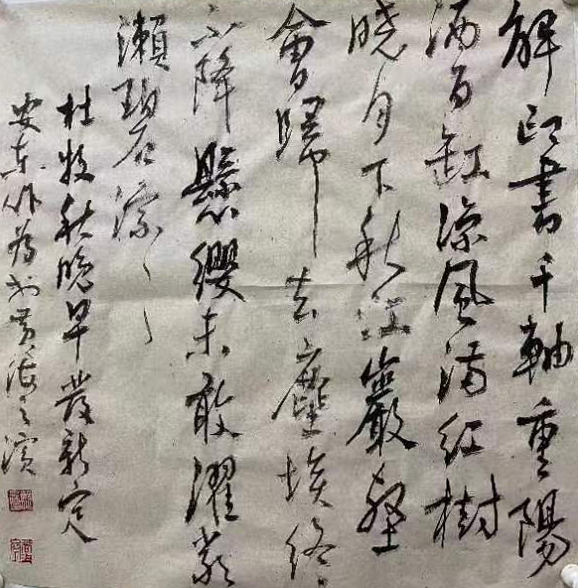 解印書千軸重陽
酒百缸涼風滿紅樹
曉月下秋江巖壑
會歸去塵埃終
不降懸纓未敢濯嚴
瀨碧淙〻
杜牧秋晚早發新定
安東作 黃海之濱